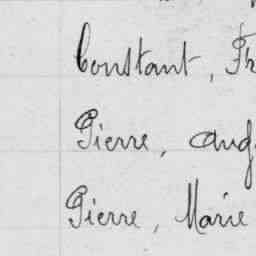 Constant, Fr
Pierre, Aug
Pierre, Marie